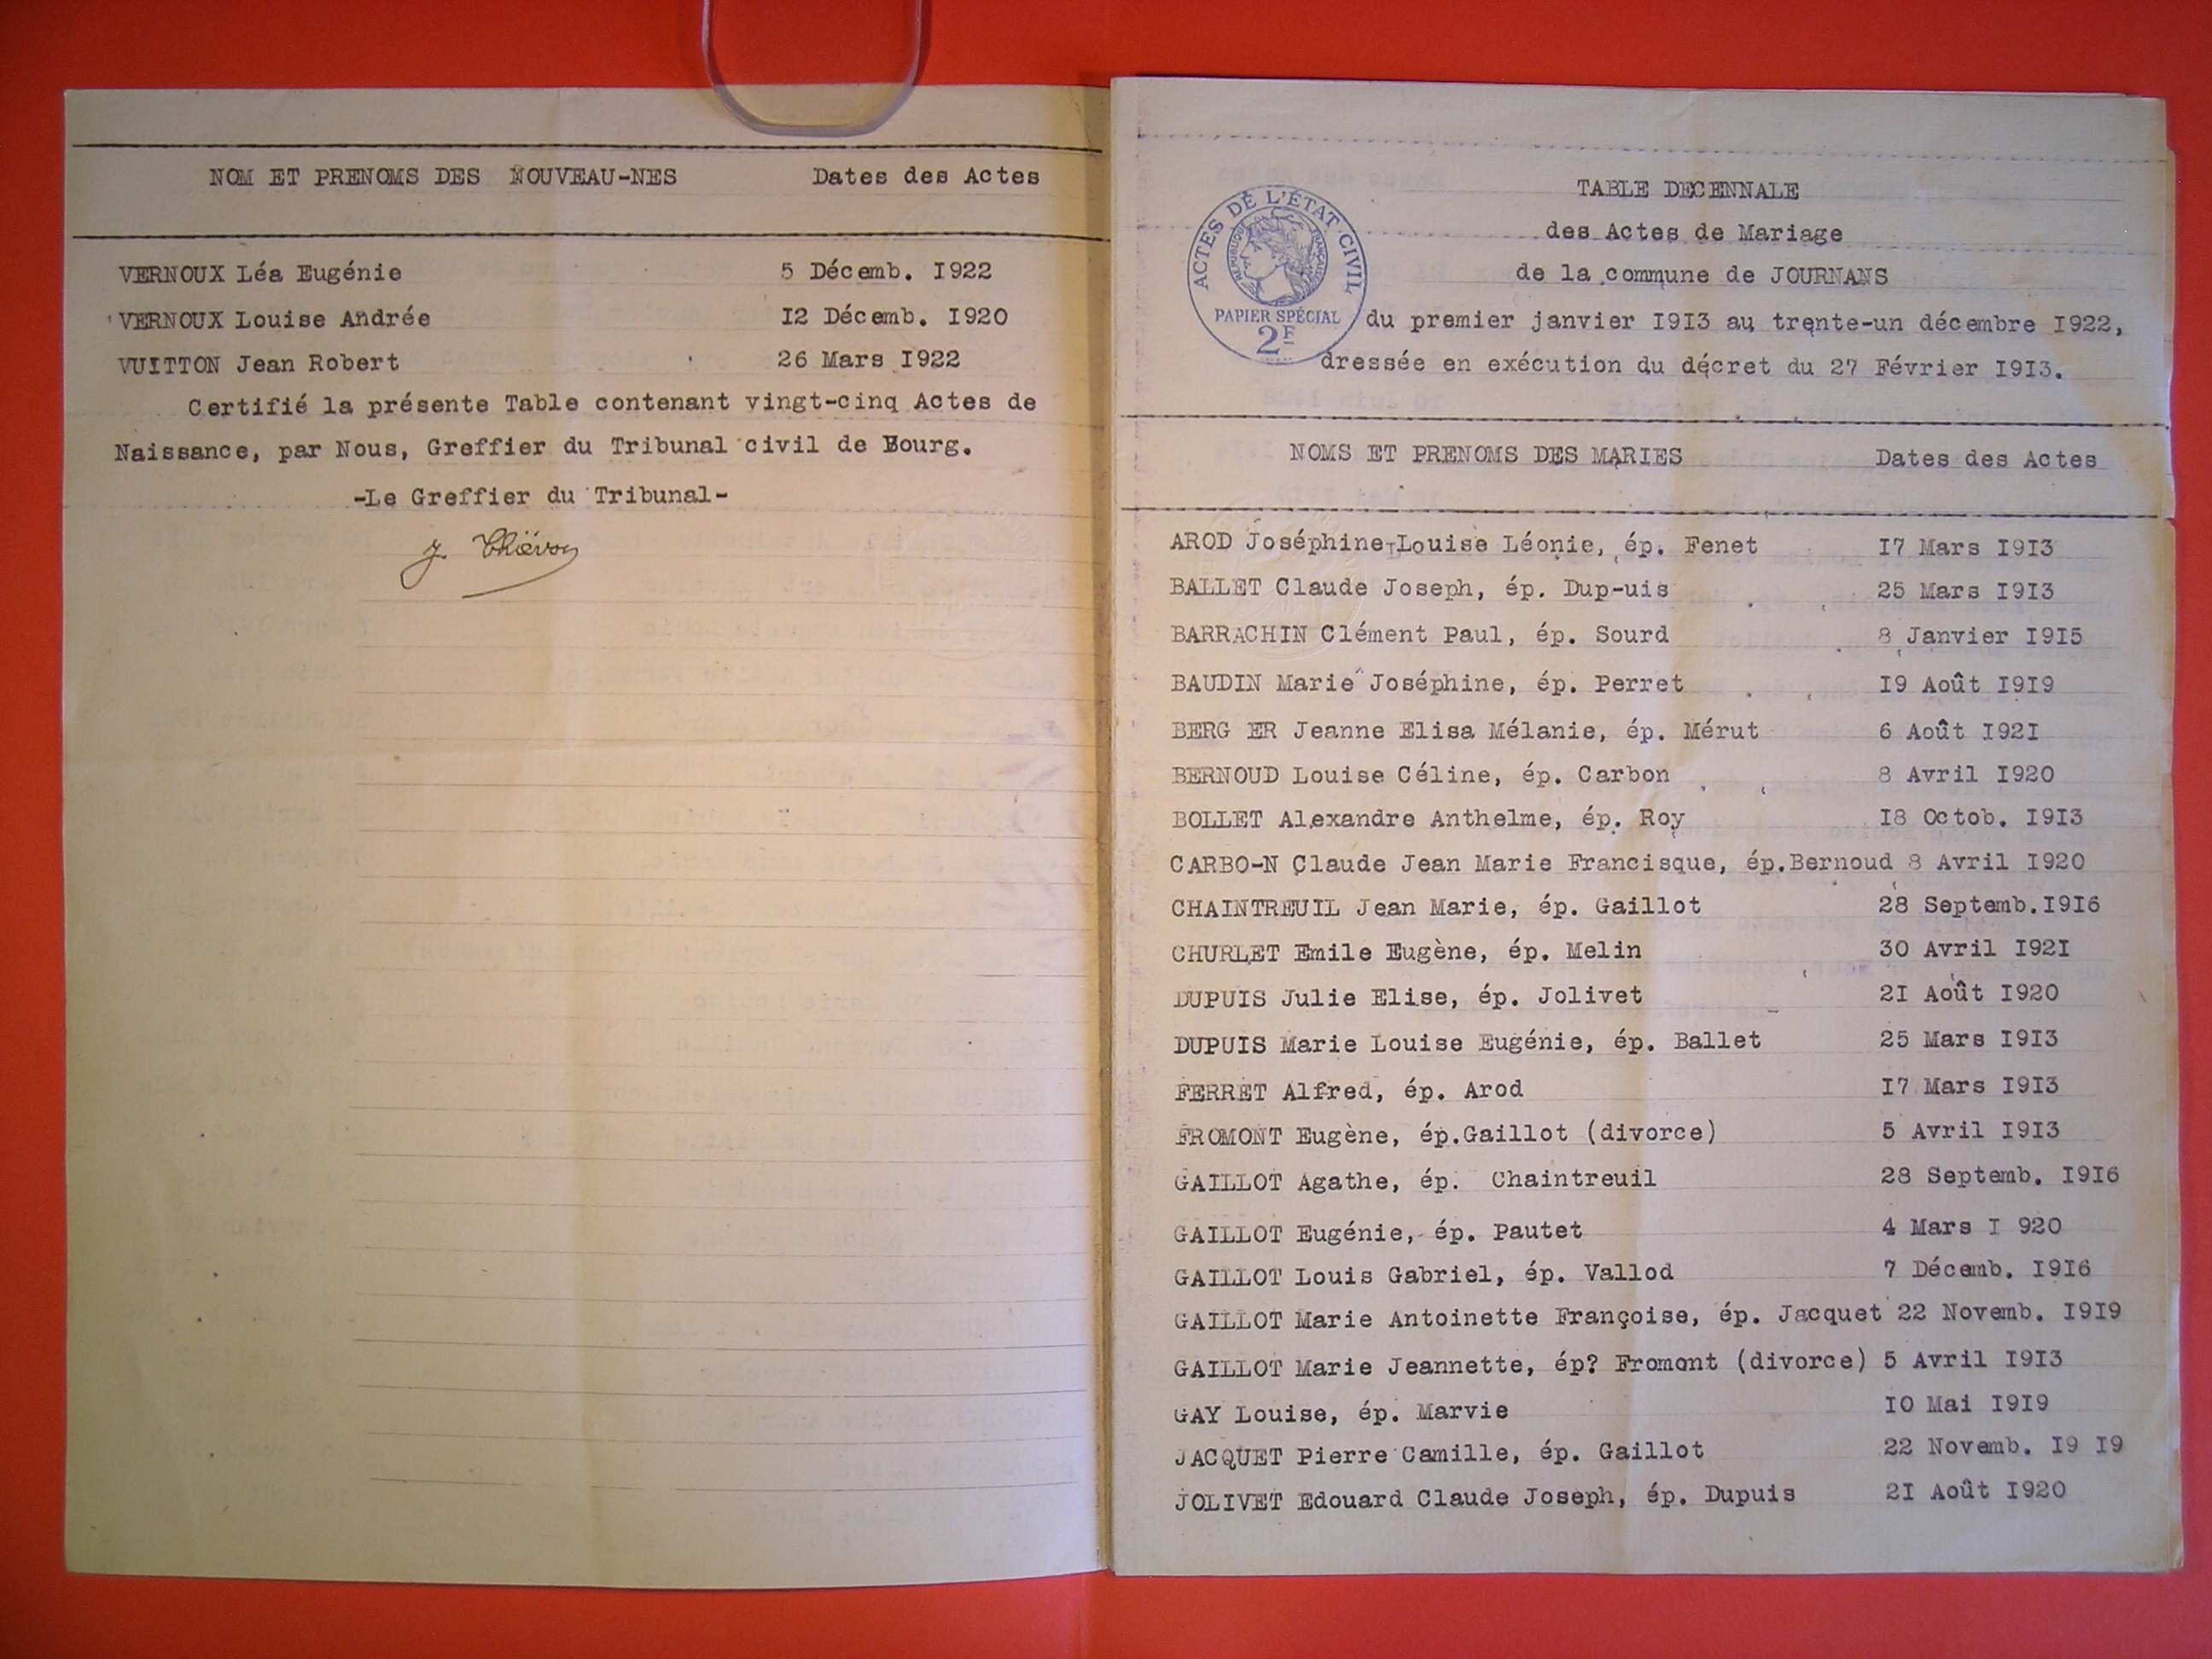 NOM ET PRENOMS DES NOUVEAU-NES Dates des Actes
VERNOUX Léa Eugénie 5 Décemb. I922
VERNOUX Louise Andrée I2 Décemb. I920
VUITTON Jean Robert 26 Mars I922
Certifié la présente Table contenant vingt-cinq Actes de
Naissance, par Nous, Greffier du Tribunal civil de Bourg.
-Le Greffier du Tribunal-
ACTES DE L'ÉTAT CIVIL
REPUBLIQUE FRANÇAISE
PAPIER SPÉCIAL
2F
TABLE DECENNALE
des Actes de Mariage
de la commune de JOURNANS
du premier janvier I9I3 au trente-un décembre I922,
dressée en exécution du décret du 27 Février I9I3.
NOMS ET PRENOMS DES MARIES Dates des Actes
AROD Joséphine-Louise Léonie, ép. Fenet I7 Mars I9I3
BALLET Claude Joseph, ép. Dup-uis 25 Mars I9I3
BARRACHIN Clément Paul, ép. Sourd 8 Janvier I9I5
BAUDIN Marie Joséphine, ép. Perret I9 Août I9I9
BERG ER Jeanne Elisa Mélanie, ép. Mérut 6 Août I92I
BERNOUD Louise Céline, ép. Carbon 8 Avril I920
BOLLET Alexandre Anthelme, ép. Roy I8 Octob. I9I3
CARBO-N Claude Jean Marie Francisque, ép.Bernoud 8 Avril I920
CHAINTREUIL Jean Marie, ép. Gaillot 28 Septemb.I9I6
CHURLET Emile Eugène, ép. Melin 30 Avril I92I
DUPUIS Julie Elise, ép. Jolivet 2I Août I920
DUPUIS Marie Louise Eugénie, ép. Ballet 25 Mars I9I3
FERRET Alfred, ép. Arod I7 Mars I9I3
FROMONT Eugène, ép.Gaillot (divorce) 5 Avril I9I3
GAILLOT Agathe, ép. Chaintreuil 28 Septemb. I9I6
GAILLOT Eugénie, ép. Pautet 4 Mars I 920
GAILLOT Louis Gabriel, ép. Vallod 7 Décemb. I9I6
GAILLOT Marie Antoinette Françoise, ép. Jacquet 22 Novemb. I9I9
GAILLOT Marie Jeannette, ép? Fromont (divorce) 5 Avril I9I3
GAY Louise, ép. Marvie I0 Mai I9I9
JACQUET Pierre Camille, ép. Gaillot 22 Novemb. I9 I9
JOLIVET Edouard Claude Joseph, ép. Dupuis 2I Août I920